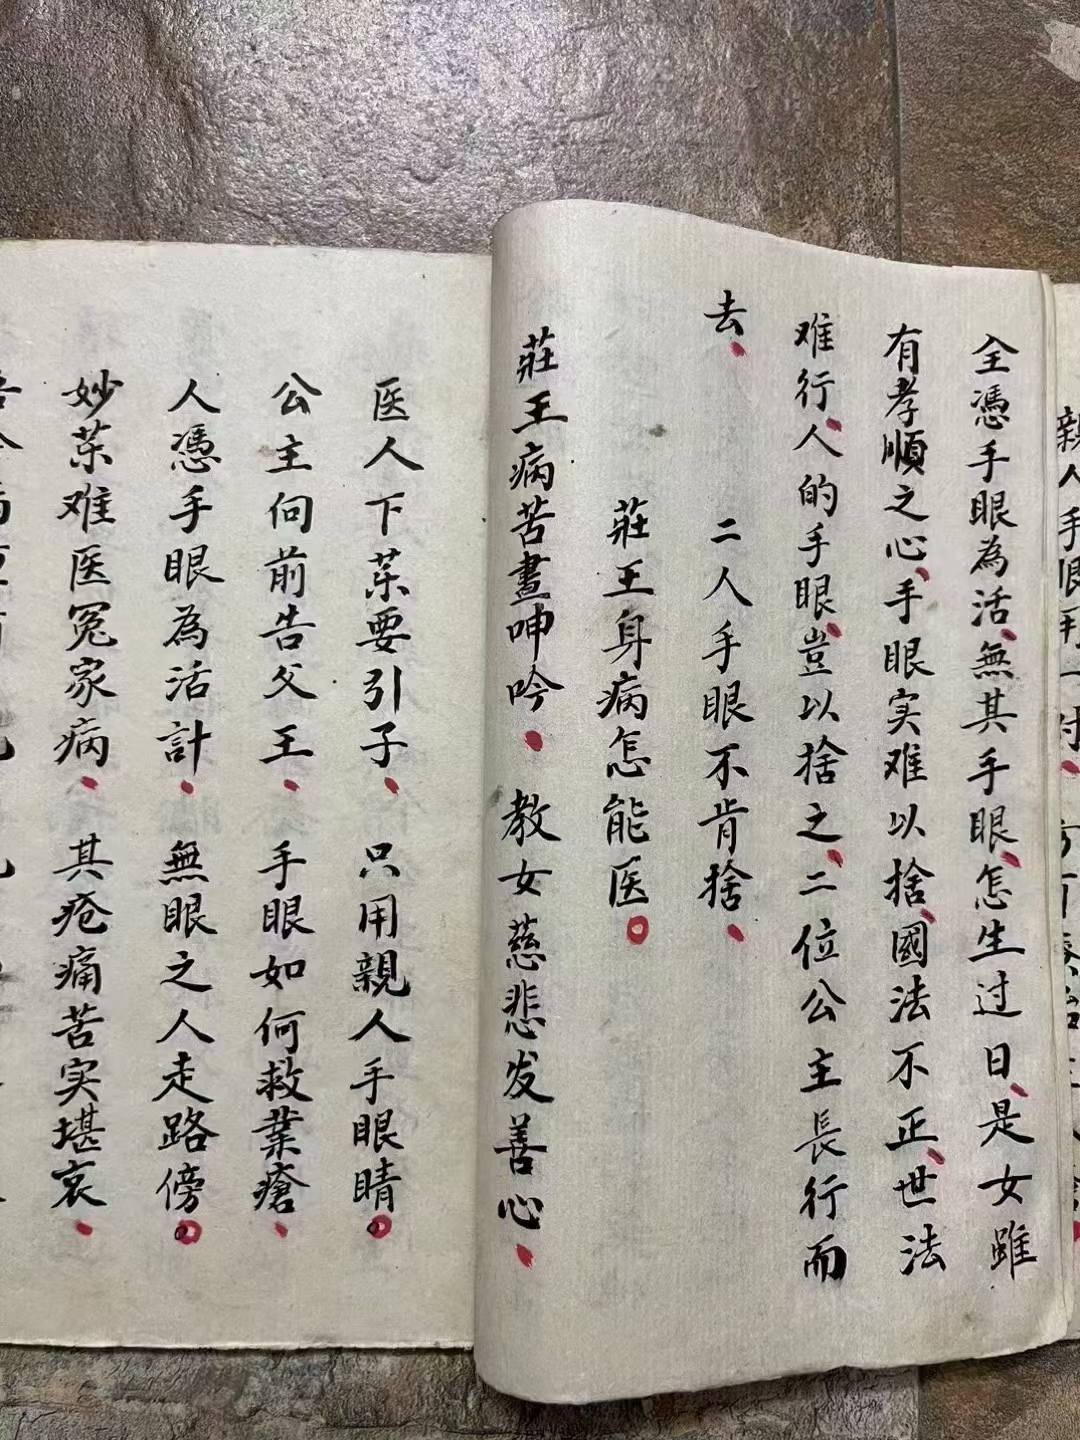 親人手眼
全憑手眼為活、無其手眼、怎生过日、是女雖
有孝順之心、手眼实难以捨、國法不正、世法
难行、人的手眼、豈以捨之、二位公主長行而
去、
二人手眼不肯捨、
莊王身病怎能医。
莊王病苦晝呻吟、教女慈悲发善心、
医人下茶要引子、只用親人手眼睛。
公主向前告父王、手眼如何救業瘡、
人憑手眼為活計、無眼之人走路傍。
妙茶难医冤家病、其疮痛苦实堪哀、